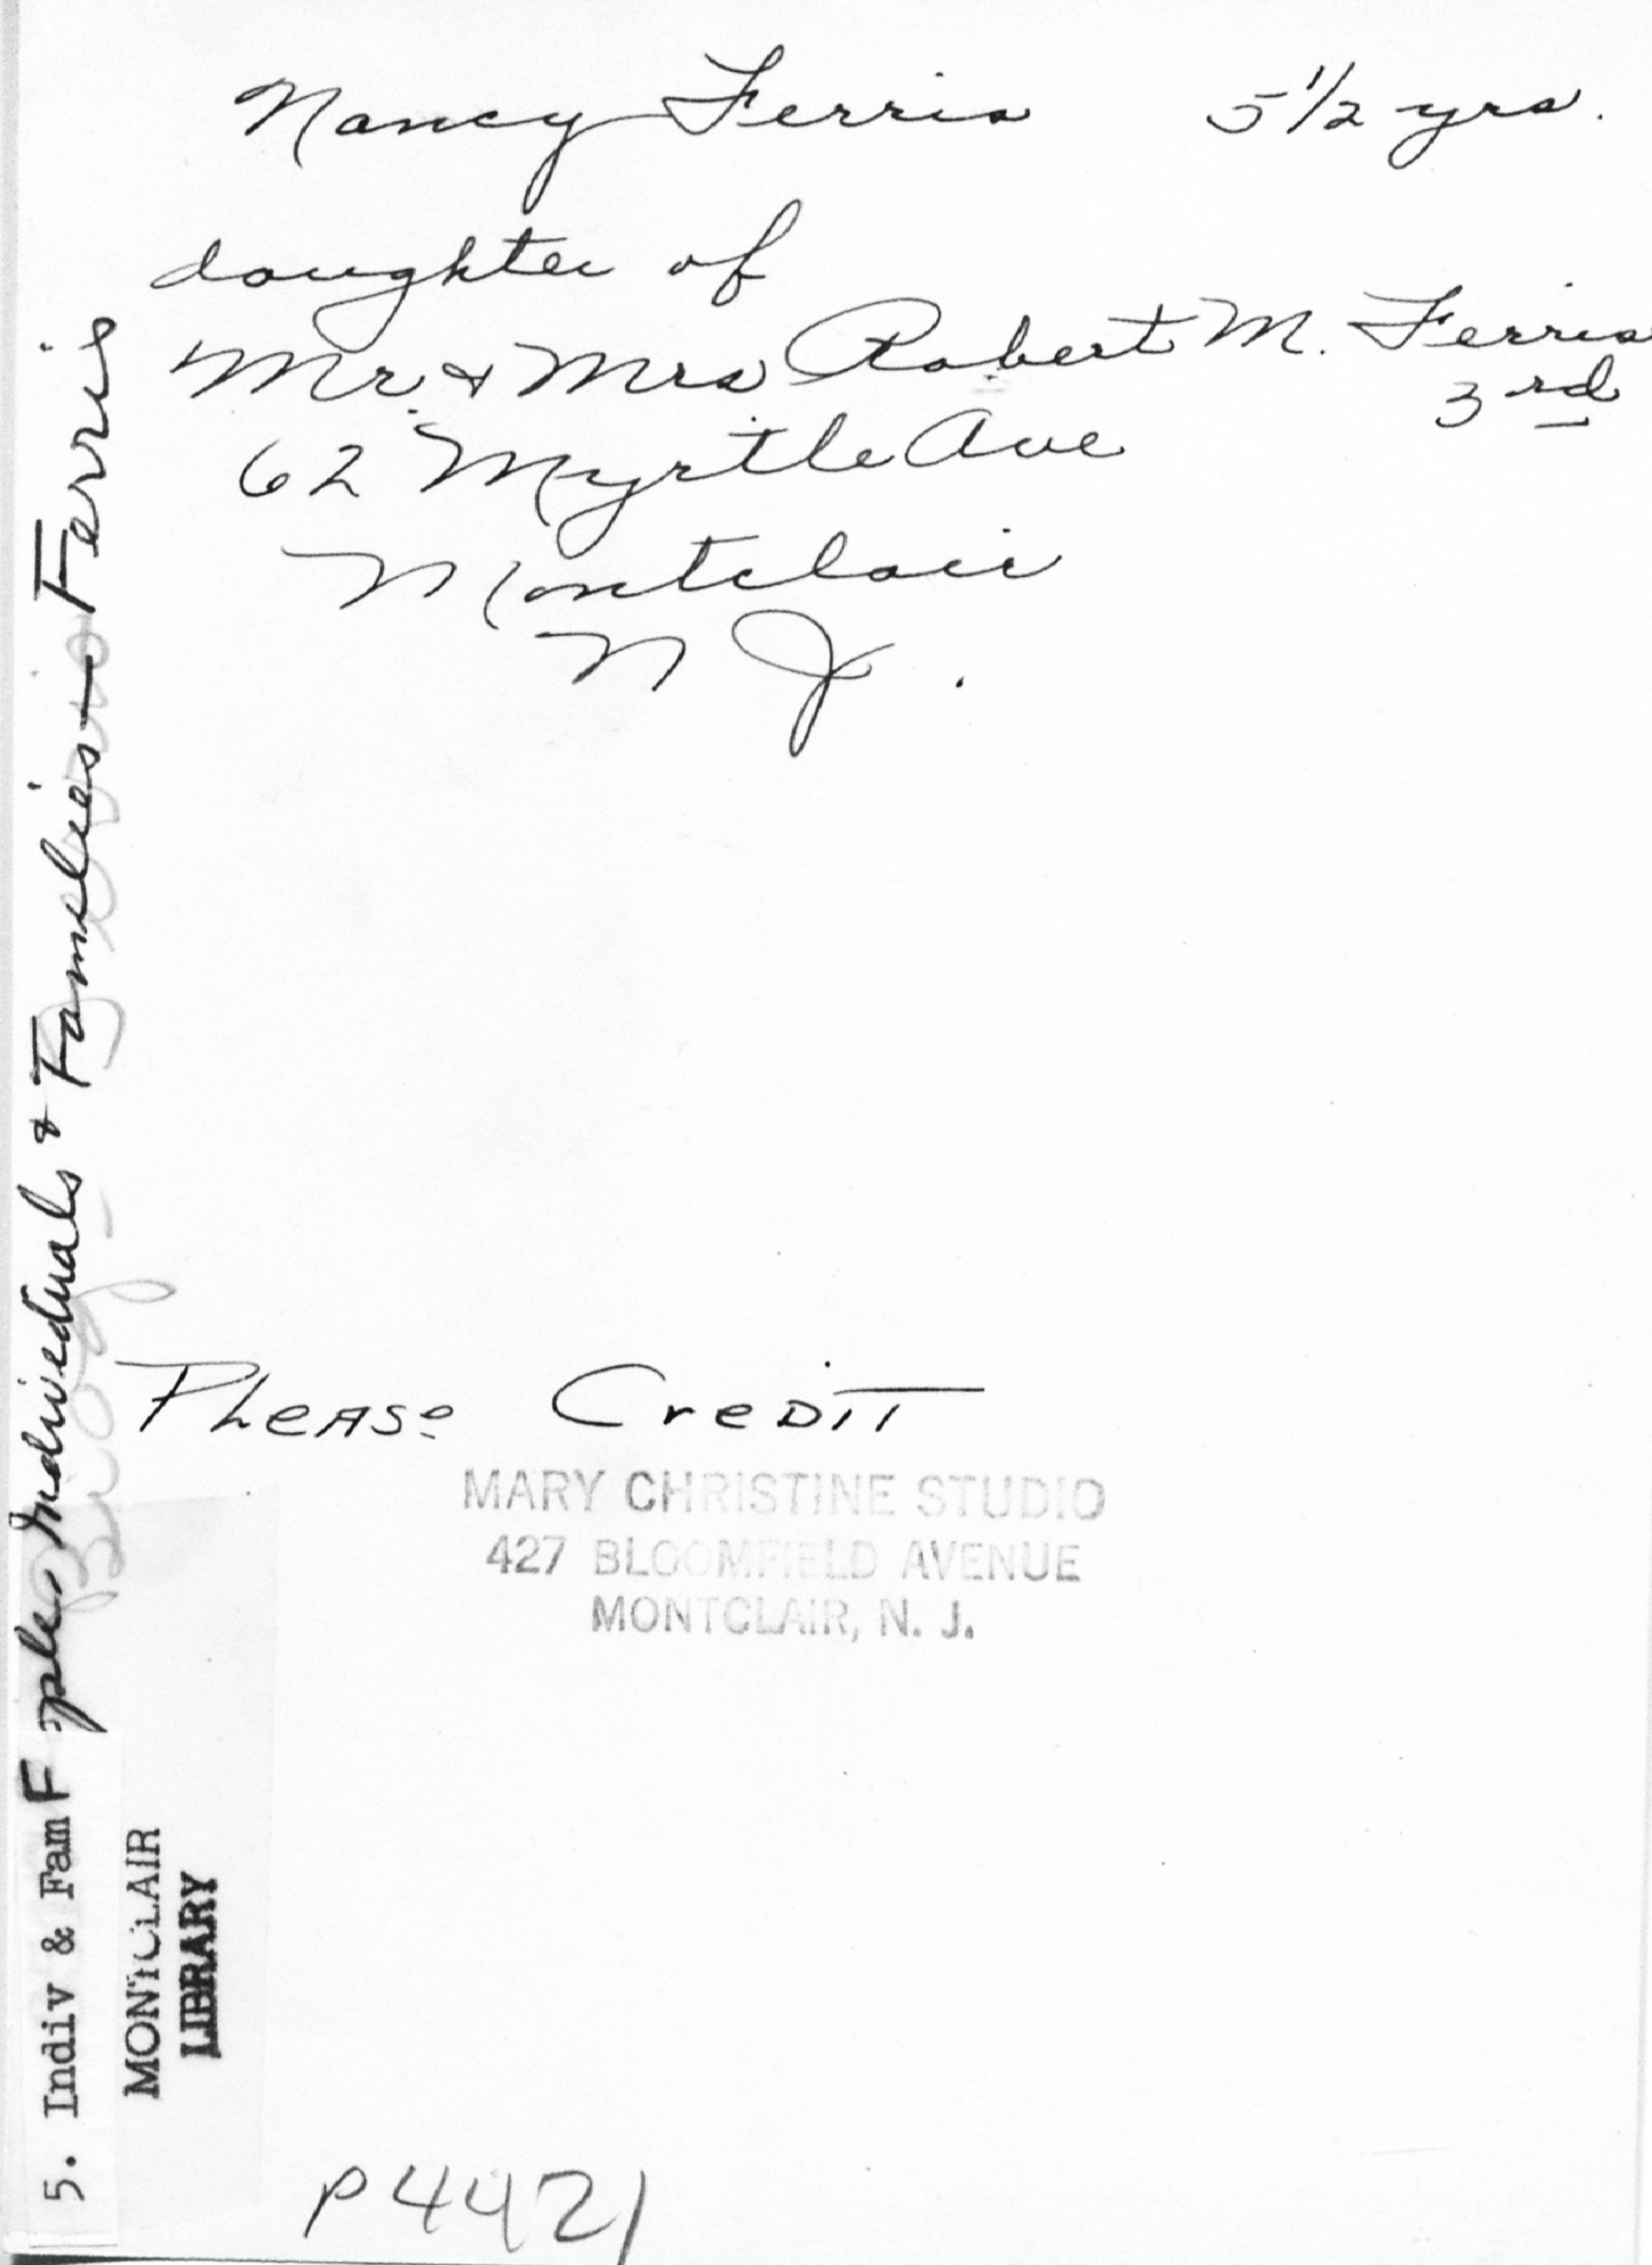 Nancy Ferris 5 1/2 yrs.
daughter of
Mr. & Mrs Robert M. Ferris
3rd
62 Myrtle Ave
Montclair
N J.
Please Credit
MARY CHRISTINE STUDIO
427 BLOOMFIELD AVENUE
MONTCLAIR, N. J.
P4421
5. Indiv & Fam F ples Individuals & Families - Ferris
MONTCLAIR
LIBRARY